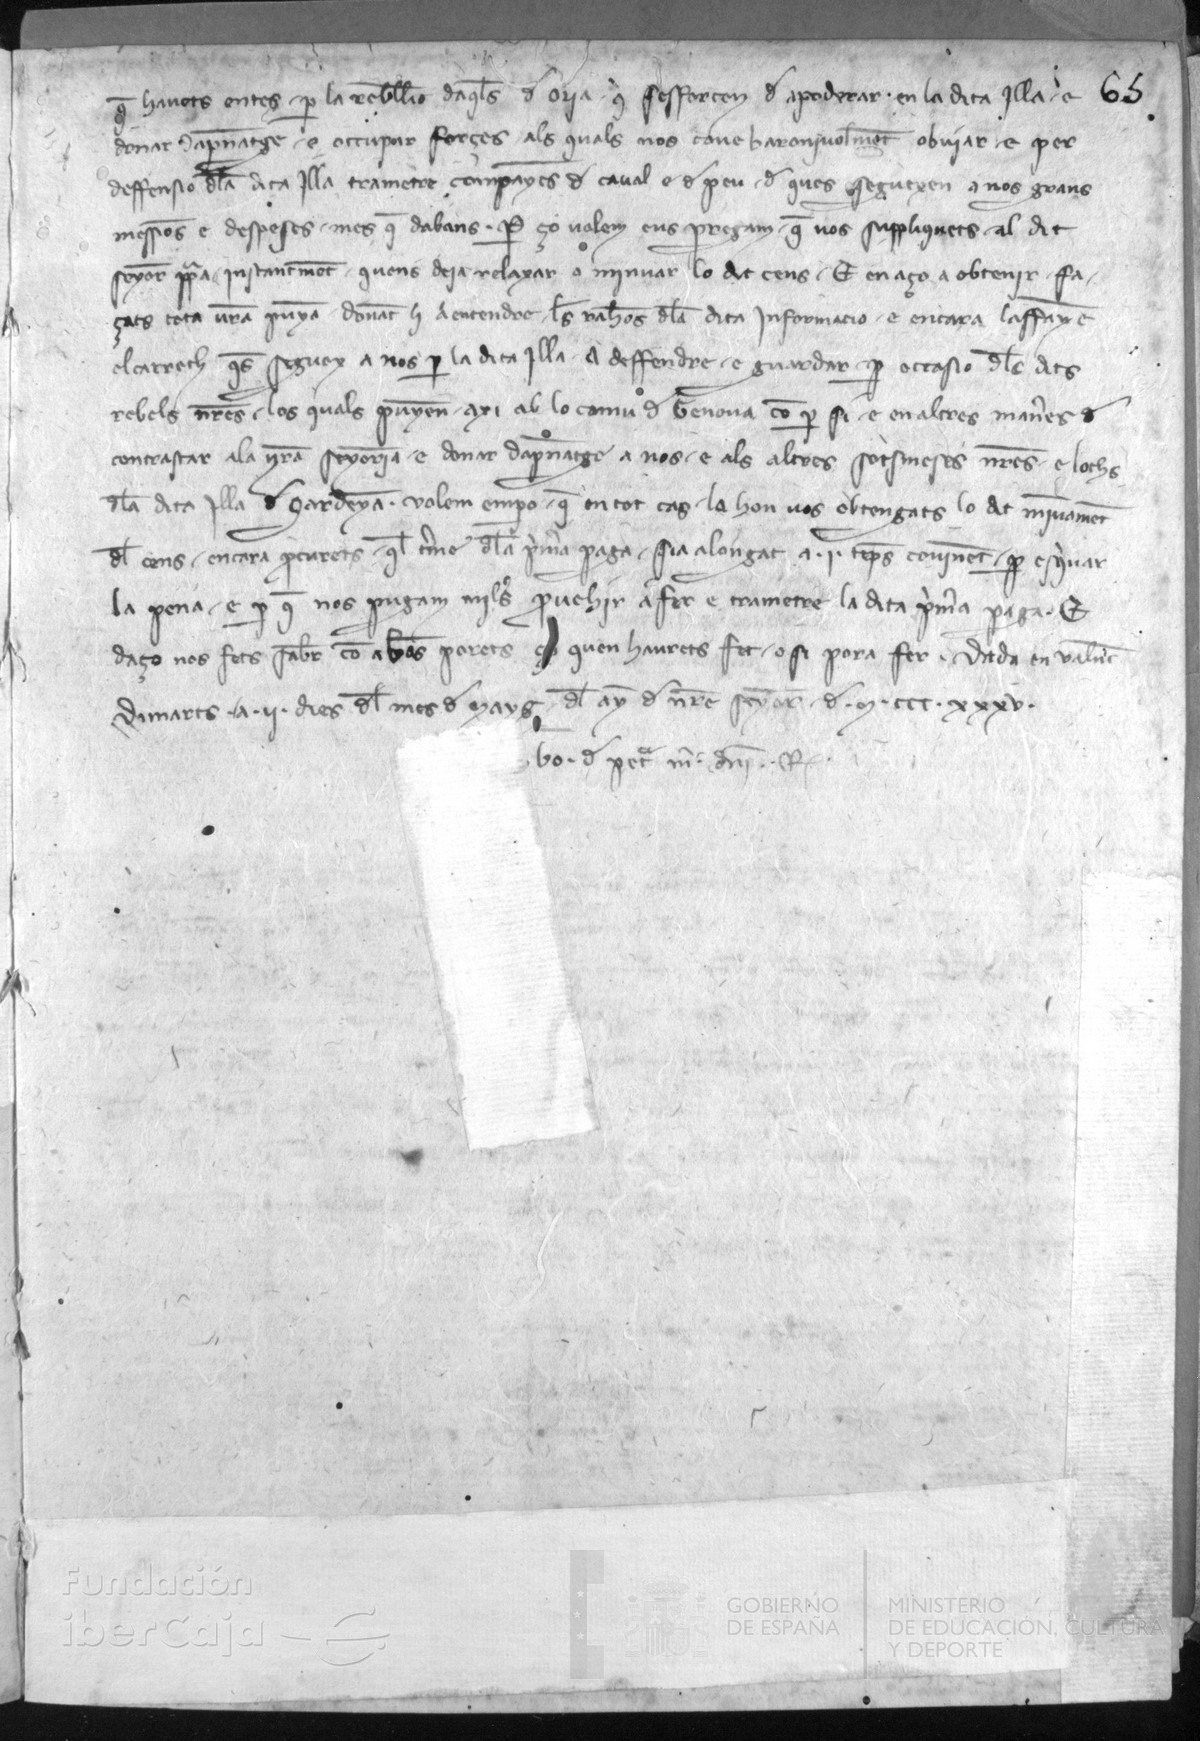 q̄ havets entes · p̱ la rebel̄lio daql̄s d Oria · q̇ sesforcen d apoderar · en la dita Illa · e 65
donar dapn̄atge · e occupar forçes als quals nos cove baronivolmēt obviar · e per
deffensio dl̄a dita Illa trametre compayes d caval e d peu · d ques seguexen a nos grans
messiōs e despeses · mes q̄ dabans · P̱ ço volem eus pregam · q̄ vos suppliquets · al dit
seyor pp̄a · instantmēt · quens deia relaxar o minvar lo dit cens · E en aço a obtenir · fa-
çats tota vr̄a puyā · donāt hi a entendre · ls̄ rahōs dl̄a dita Informacio · e encara laffāy e
el carrech qs̄ seguex a nos p̱ la dita Illa · a deffendre · e guardar · p̱ occasio dl̄s dits
rebels nr̄es · los quals puyen · axi ab lo comu d Genova cō p̱ si · e en altres man̄es d
contrastar a la vr̄a seyoria · e donar dapn̄atge a nos · e als altres sotsmeses nr̄es · e lochs
dl̄a dita Illa d Sardeya · volem empo · q̄ en tot cas · la hon vos obtengats lo dit minvamēt
dl̄ cens · encara pcurets · ql̄ tm̄e dl̄a pm̄a paga · sia alongat · a · i · temps covinēt · p̱ esqivar
la pena · e p̱ q̄ nos pugam mils pvehir a fer e trametre la dita pm̄a paga · E
daço nos fets sabr̄ cō abās porets ço quen haurets fet · o si pora fer · Dada en valn̄c
Dimarts · a · ii · dies dl̄ mes d Mayg · dl̄ ay d nr̄e seyor · d · M · CCC · xxxv ·
bo · d pet̄ m̄ · dn̄i · R
Fundación
iberCaja
GOBIERNO
DE ESPAÑA
MINISTERIO
DE EDUCACIÓN, CULTURA
Y DEPORTE